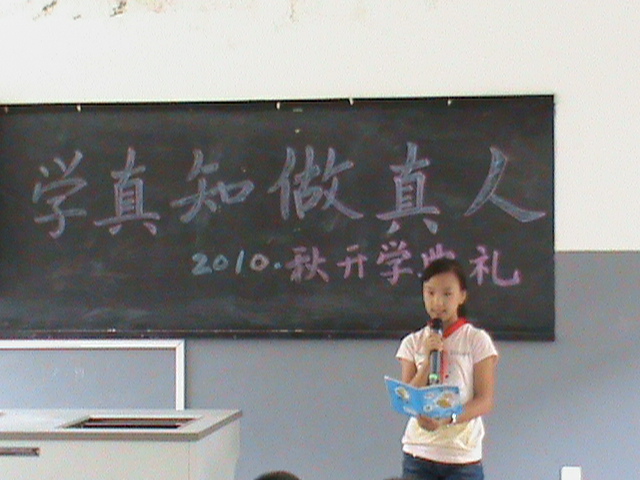 学真知做真人
2010.秋开学典礼